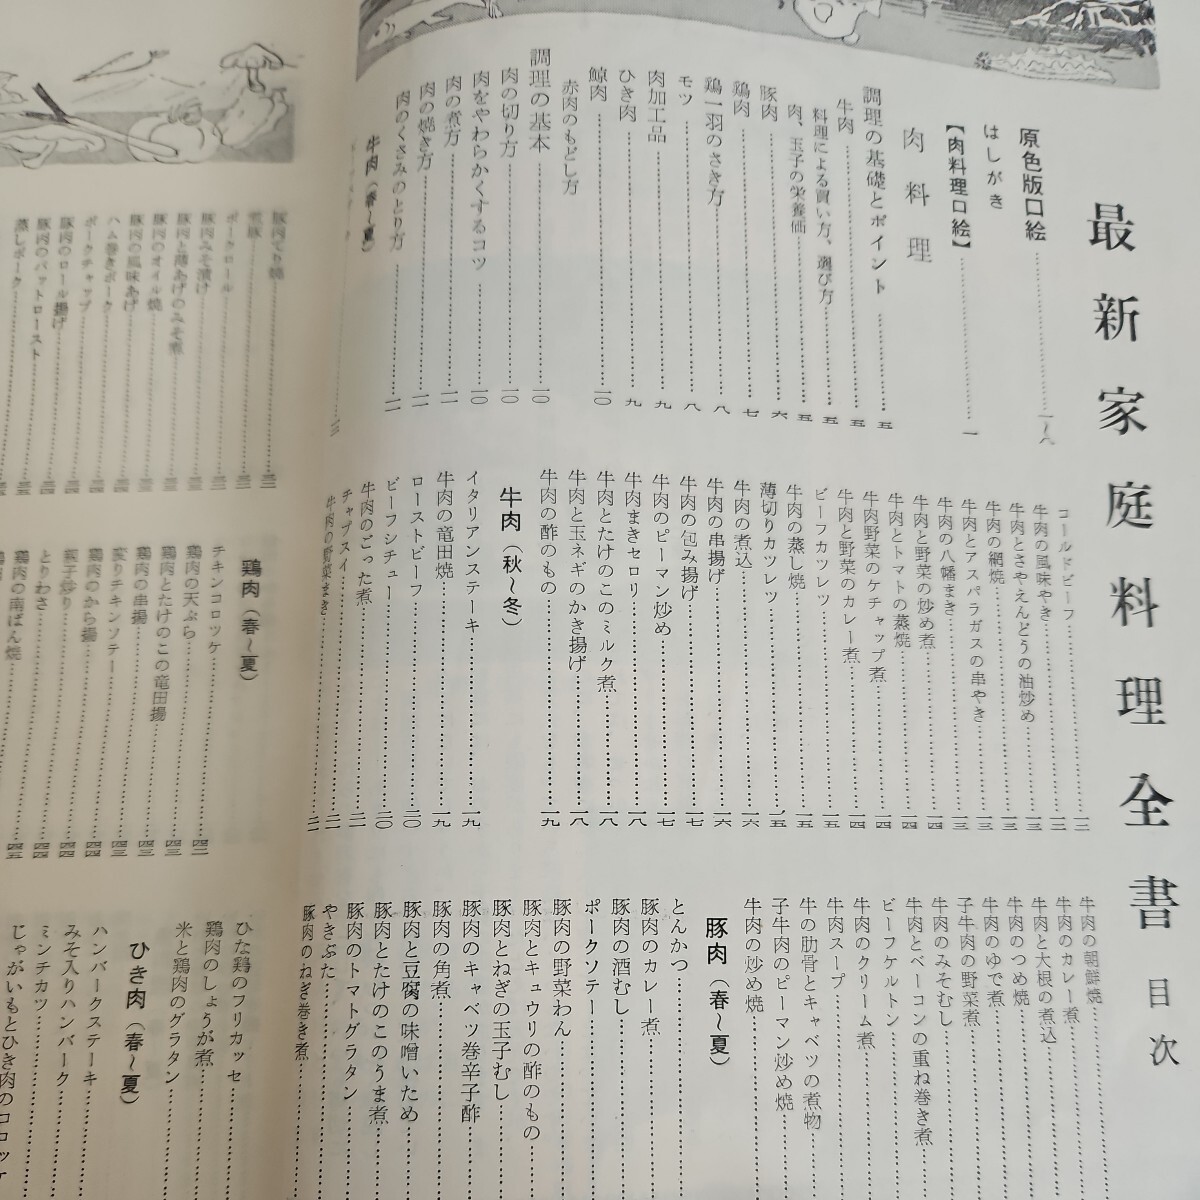 最新家庭料理全書 目次
原色版口絵……一〜八
はしがき
【肉料理口絵】……一
肉料理
調理の基礎とポイント……五
牛肉……五
料理による買い方、選び方……五
肉、玉子の栄養価……五
豚肉……六
鶏肉……七
鶏一羽のさき方……八
モツ……八
肉加工品……九
ひき肉……九
鯨肉……一〇
赤肉のもどし方
調理の基本……一〇
肉の切り方……一〇
肉をやわらかくするコツ……一〇
肉の煮方……一一
肉の焼き方……一一
肉のくさみのとり方……一一
牛肉(春〜夏)
コールドビーフ……一二
牛肉の風味やき……一二
牛肉とさやえんどうの油炒め……一三
牛肉の網焼……一三
牛肉とアスパラガスの串やき……一三
牛肉の八幡まき……一四
牛肉と野菜の炒め煮……一四
牛肉とトマトの蒸焼……一四
牛肉野菜のケチャップ煮……一四
牛肉と野菜のカレー煮……一四
ビーフカツレツ……一五
牛肉の蒸し焼……一五
薄切りカツレツ……一五
牛肉の煮込……一六
牛肉の串揚げ……一六
牛肉の包み揚げ……一七
牛肉のピーマン炒め……一七
牛肉まきセロリ……一八
牛肉とたけのこのミルク煮……一八
牛肉と玉ネギのかき揚げ……一八
牛肉の酢のもの……一九
牛肉(秋〜冬)
イタリアンステーキ……一九
牛肉の竜田焼……一九
ローストビーフ……二〇
ビーフシチュー……二〇
牛肉のごった煮……二一
チャプスイ……二一
牛肉の野菜まき……二一
牛肉の朝鮮焼
牛肉のカレー煮
牛肉と大根の煮込
牛肉のつめ焼
牛肉のゆで煮
子牛肉の野菜煮
牛肉のみそむし
牛肉とベーコンの重ね巻き煮
ビーフケルトン
牛肉のクリーム煮
牛肉スープ
牛の肋骨とキャベツの煮物
子牛肉のピーマン炒め焼
牛肉の炒め焼
豚肉(春〜夏)
とんかつ
豚肉のカレー煮
豚肉の酒むし
ポークソテー
豚肉の野菜わん
豚肉とキュウリの酢のもの
豚肉とねぎの玉子むし
豚肉のキャベツ巻辛子酢
豚肉の角煮
豚肉と豆腐の味噌いため
豚肉とたけのこのうま煮
豚肉のトマトグラタン
やきぶた
豚肉のねぎ巻き煮
豚肉てり焼
煮豚
ポークロール
豚肉みそ漬け
豚肉と薄あげのみそ煮
豚肉のオイル焼
豚肉の風味あげ
ハム巻きポーク
ポークチャップ
豚肉のロール揚げ
豚肉のパットロースト
蒸しポーク
鶏肉(春〜夏)
チキンコロッケ
鶏肉の天ぷら
鶏肉とたけのこの竜田揚
鶏肉の串揚
変りチキンソテー
鶏肉のから揚
親子炒り
とりわさ
鶏肉の南ばん焼
ひな鶏のフリカッセ
鶏肉のしょうが煮
米と鶏肉のグラタン
ひき肉(春〜夏)
ハンバークステーキ
みそ入りハンバーク
ミンチカツ
じゃがいもとひき肉のコロッケ